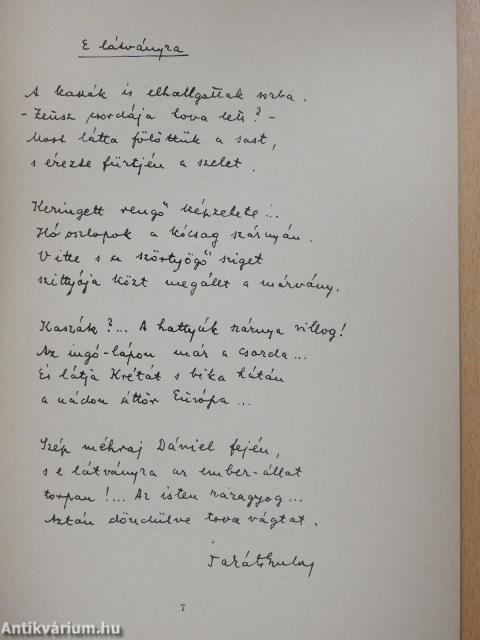 E látványra
A kaszák is elhallgattak sorba.
- Zeusz csordája hova lett? -
Most látta fölöttük a sast,
s érezte fürtjén a szelet.
Keringett rengő képzelete...
Hó oszlopok a kócsag szárnyán.
Vitte s a szörtyögő sziget
szittyója közt megállt a márvány.
Kaszák?... A hattyúk szárnya villog!
Az ingó-lápon már a csorda...
És látja Krétát s bika hátán
a nádon áttör Európa...
Szép méhraj Dániel fején,
s e látványra az ember-állat
torpan!... Az isten ráragyog...
Aztán döndülve tova vágtat.
7
Antikvárium.hu
Antikvárium.hu